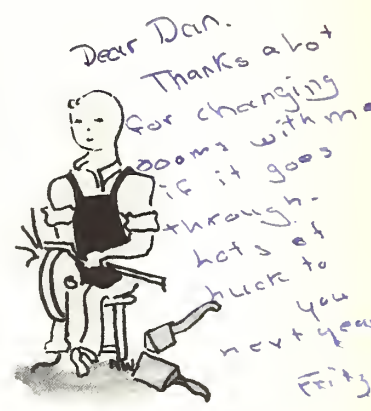 Dear Dan.
Thanks a lot
for changing
rooms with me
if it goes
through.
Lots of
luck to
you
next year
Fritz